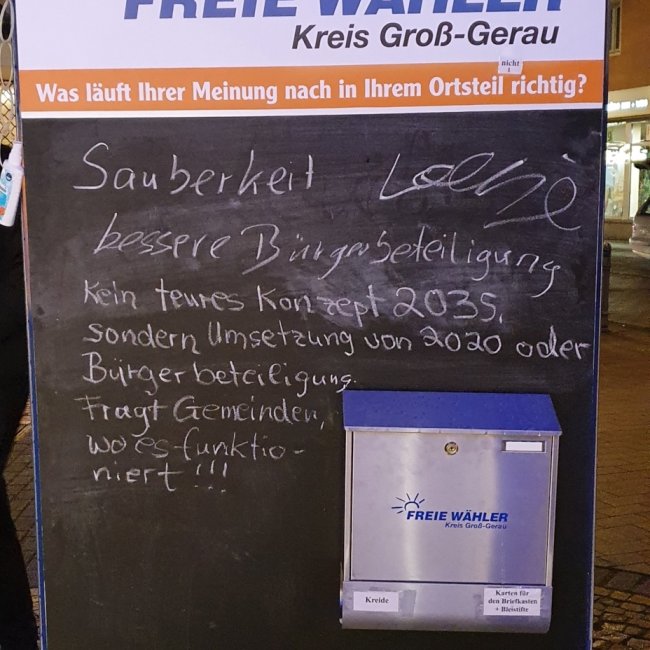 FREIE WÄHLER
Kreis Groß-Gerau
nicht
Was läuft Ihrer Meinung nach in Ihrem Ortsteil richtig?
Sauberkeit
bessere Bürgerbeteiligung
Kein teures Konzept 2035,
sondern Umsetzung von 2020 oder
Bürgerbeteiligung.
Fragt Gemeinden,
wo es funktio-
niert!!!
FREIE WÄHLER
Kreis Groß-Gerau
Kreide
Karten für
den Briefkasten
+ Bleistifte